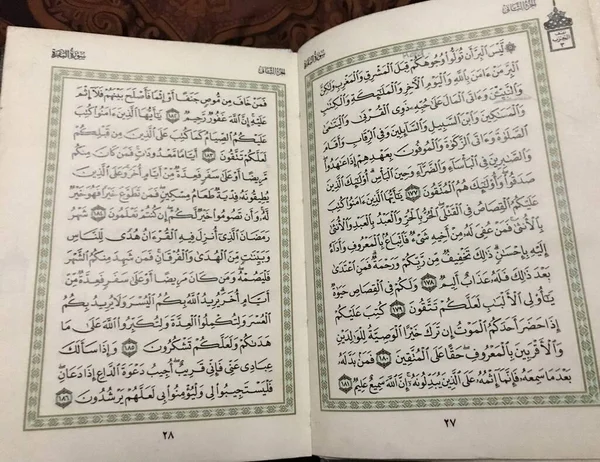 الجزء الثاني
لَيْسَ الْبِرَّ أَن تُوَلُّوا وُجُوهَكُمْ قِبَلَ الْمَشْرِقِ وَالْمَغْرِبِ وَلَٰكِنَّ
الْبِرَّ مَنْ ءَامَنَ بِاللَّهِ وَالْيَوْمِ الْآخِرِ وَالْمَلَٰئِكَةِ وَالْكِتَٰبِ
وَالنَّبِيِّۦنَ وَءَاتَى الْمَالَ عَلَىٰ حُبِّهِۦ ذَوِى الْقُرْبَىٰ وَالْيَتَٰمَىٰ
وَالْمَسَٰكِينَ وَابْنَ السَّبِيلِ وَالسَّائِلِينَ وَفِى الرِّقَابِ وَأَقَامَ
الصَّلَوٰةَ وَءَاتَى الزَّكَوٰةَ وَالْمُوفُونَ بِعَهْدِهِمْ إِذَا عَٰهَدُوا
وَالصَّٰبِرِينَ فِى الْبَأْسَاءِ وَالضَّرَّاءِ وَحِينَ الْبَأْسِ أُولَٰئِكَ الَّذِينَ
صَدَقُوا وَأُولَٰئِكَ هُمُ الْمُتَّقُونَ ١٧٧ يَٰأَيُّهَا الَّذِينَ ءَامَنُوا كُتِبَ
عَلَيْكُمُ الْقِصَاصُ فِى الْقَتْلَى الْحُرُّ بِالْحُرِّ وَالْعَبْدُ بِالْعَبْدِ وَالْأُنثَىٰ
بِالْأُنثَىٰ فَمَنْ عُفِىَ لَهُۥ مِنْ أَخِيهِ شَىْءٌ فَاتِّبَاعٌ بِالْمَعْرُوفِ وَأَدَاءٌ
إِلَيْهِ بِإِحْسَٰنٍ ذَٰلِكَ تَخْفِيفٌ مِّن رَّبِّكُمْ وَرَحْمَةٌ فَمَنِ اعْتَدَىٰ
بَعْدَ ذَٰلِكَ فَلَهُۥ عَذَابٌ أَلِيمٌ ١٧٨ وَلَكُمْ فِى الْقِصَاصِ حَيَوٰةٌ
يَٰأُولِى الْأَلْبَٰبِ لَعَلَّكُمْ تَتَّقُونَ ١٧٩ كُتِبَ عَلَيْكُمْ
إِذَا حَضَرَ أَحَدَكُمُ الْمَوْتُ إِن تَرَكَ خَيْرًا الْوَصِيَّةُ لِلْوَٰلِدَيْنِ
وَالْأَقْرَبِينَ بِالْمَعْرُوفِ حَقًّا عَلَى الْمُتَّقِينَ ١٨٠ فَمَنۢ بَدَّلَهُۥ
بَعْدَمَا سَمِعَهُۥ فَإِنَّمَا إِثْمُهُۥ عَلَى الَّذِينَ يُبَدِّلُونَهُۥ إِنَّ اللَّهَ سَمِيعٌ عَلِيمٌ ١٨١
٢٧
الجزء الثاني سورة البقرة
فَمَنْ خَافَ مِن مُّوصٍ جَنَفًا أَوْ إِثْمًا فَأَصْلَحَ بَيْنَهُمْ فَلَا إِثْمَ
عَلَيْهِ إِنَّ اللَّهَ غَفُورٌ رَّحِيمٌ ١٨٢ يَٰأَيُّهَا الَّذِينَ ءَامَنُوا كُتِبَ
عَلَيْكُمُ الصِّيَامُ كَمَا كُتِبَ عَلَى الَّذِينَ مِن قَبْلِكُمْ
لَعَلَّكُمْ تَتَّقُونَ ١٨٣ أَيَّامًا مَّعْدُودَٰتٍ فَمَن كَانَ مِنكُم
مَّرِيضًا أَوْ عَلَىٰ سَفَرٍ فَعِدَّةٌ مِّنْ أَيَّامٍ أُخَرَ وَعَلَى الَّذِينَ
يُطِيقُونَهُۥ فِدْيَةٌ طَعَامُ مِسْكِينٍ فَمَن تَطَوَّعَ خَيْرًا فَهُوَ خَيْرٌ
لَّهُۥ وَأَن تَصُومُوا خَيْرٌ لَّكُمْ إِن كُنتُمْ تَعْلَمُونَ ١٨٤ شَهْرُ
رَمَضَانَ الَّذِى أُنزِلَ فِيهِ الْقُرْءَانُ هُدًى لِّلنَّاسِ
وَبَيِّنَٰتٍ مِّنَ الْهُدَىٰ وَالْفُرْقَانِ فَمَن شَهِدَ مِنكُمُ الشَّهْرَ
فَلْيَصُمْهُ وَمَن كَانَ مَرِيضًا أَوْ عَلَىٰ سَفَرٍ فَعِدَّةٌ مِّنْ
أَيَّامٍ أُخَرَ يُرِيدُ اللَّهُ بِكُمُ الْيُسْرَ وَلَا يُرِيدُ بِكُمُ
الْعُسْرَ وَلِتُكْمِلُوا الْعِدَّةَ وَلِتُكَبِّرُوا اللَّهَ عَلَىٰ مَا
هَدَىٰكُمْ وَلَعَلَّكُمْ تَشْكُرُونَ ١٨٥ وَإِذَا سَأَلَكَ
عِبَادِى عَنِّى فَإِنِّى قَرِيبٌ أُجِيبُ دَعْوَةَ الدَّاعِ إِذَا دَعَانِ
فَلْيَسْتَجِيبُوا لِى وَلْيُؤْمِنُوا بِى لَعَلَّهُمْ يَرْشُدُونَ ١٨٦
٢٨